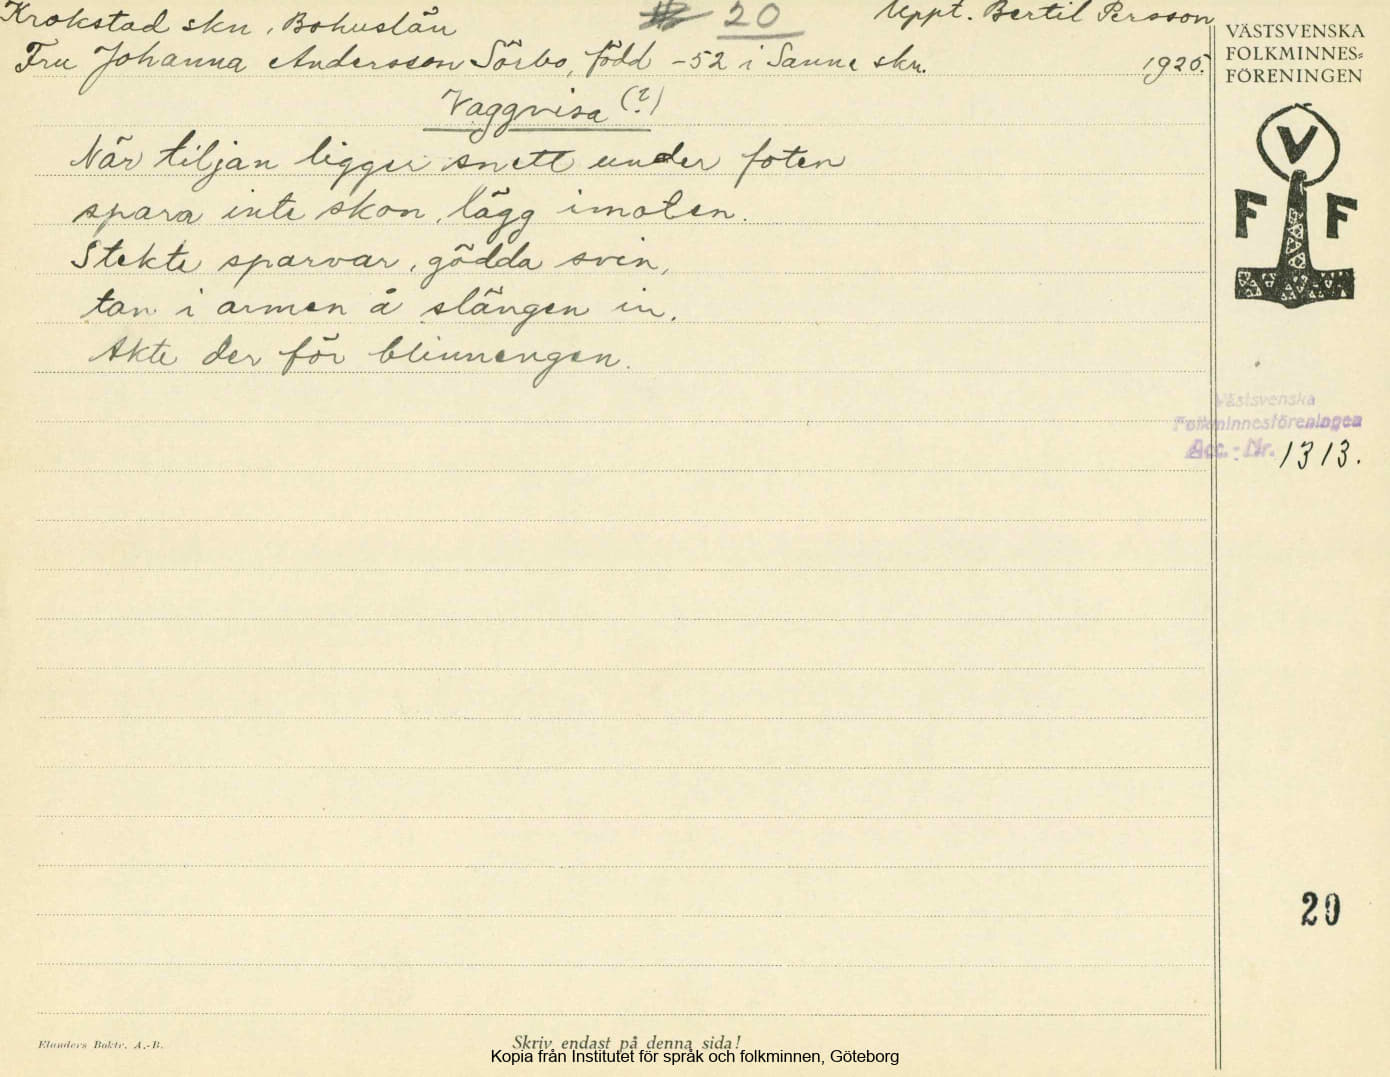 Krokstad skn, Bohuslän
20
Uppt. Bertil Persson
Fru Johanna Andersson Sörbo, född -52 i Sanne skn.
1925.
VÄSTSVENSKA
FOLKMINNES=
FÖRENINGEN
Vaggvisa (?)
När tiljan ligger snett under foten
spara inte skon, lägg imoten.
Stekte sparvar, gödda svin,
tan i armen å slängen in.
Akte der för blinnengen.
V
F F
Västsvenska
Folkminnesföreningen
Acc. - Nr. 1313.
20
Elanders Boktr. A.-B.
Skriv endast på denna sida!
Kopia från Institutet för språk och folkminnen, Göteborg